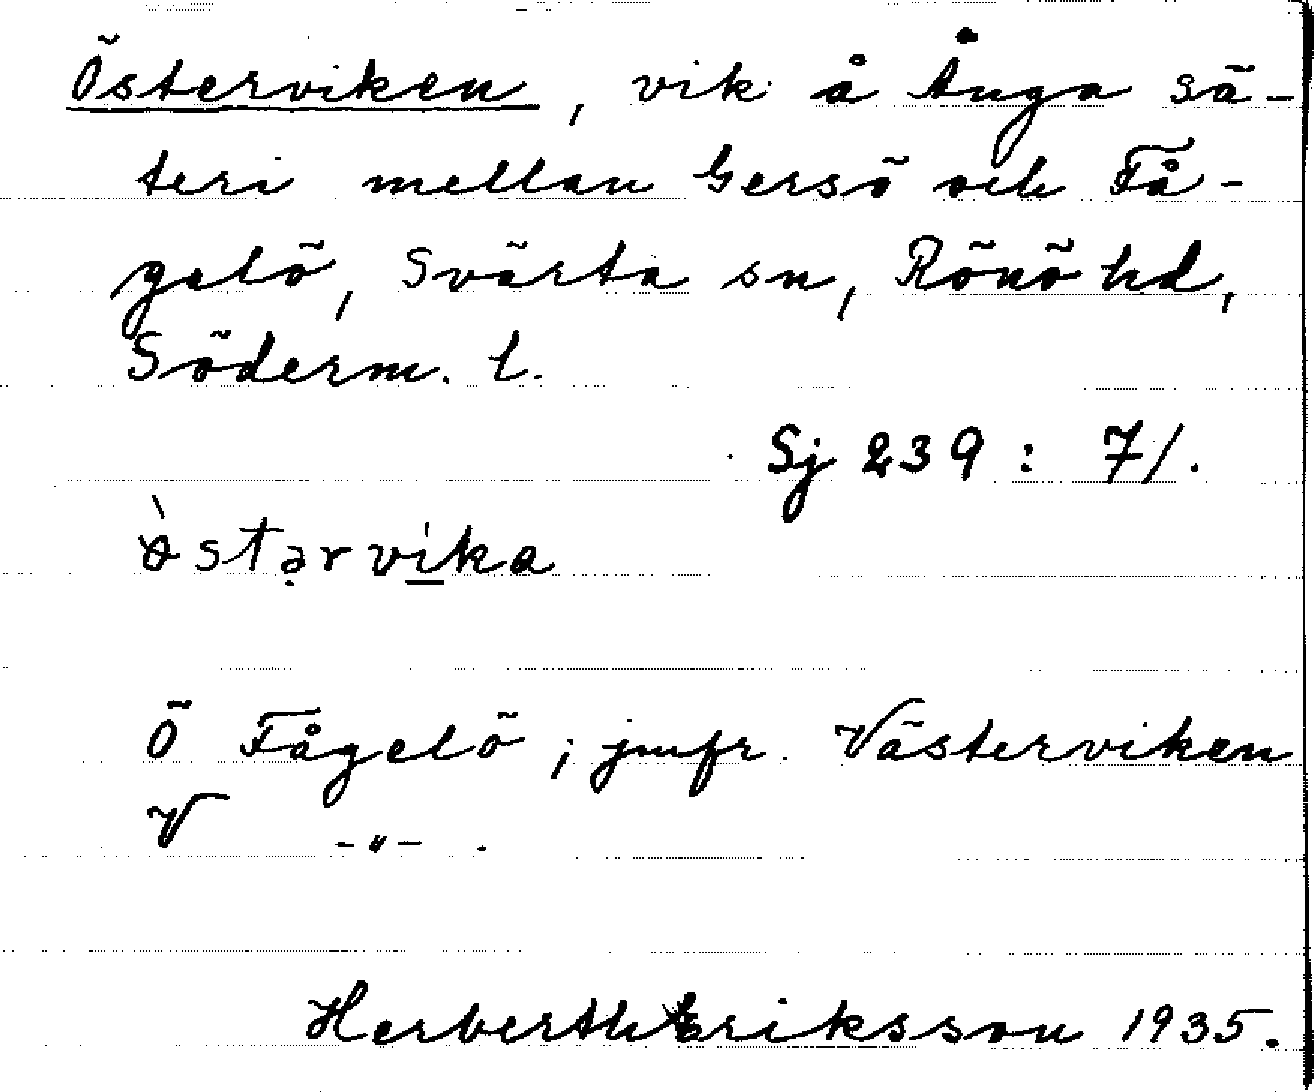 Österviken, vik å Ånga sä-
teri mellan Gersö och Få-
gelö, Svärta sn, Rönö hd,
Söderm. l.
Sj 239: 71.
östərvika
Ö Fågelö; jmfr. Västerviken
V -"- .
Herberth Eriksson 1935.